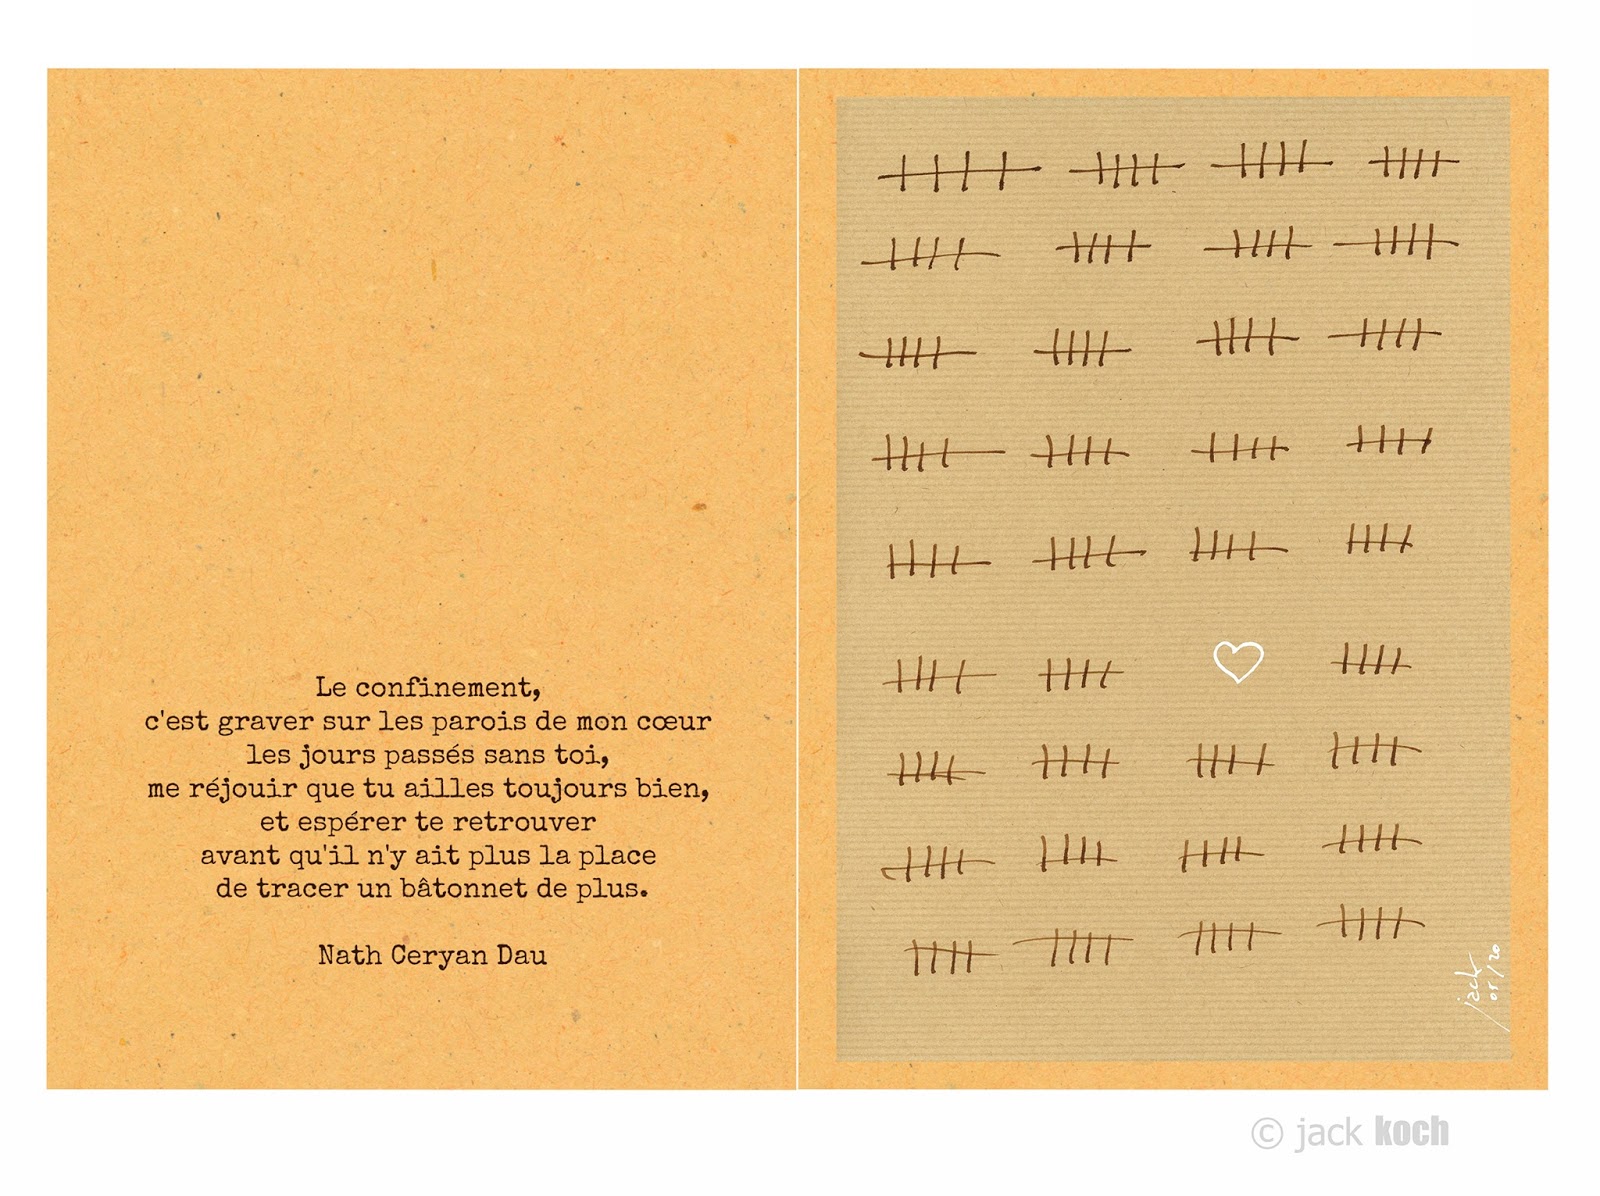 Le confinement,
c'est graver sur les parois de mon cœur
les jours passés sans toi,
me réjouir que tu ailles toujours bien,
et espérer te retrouver
avant qu'il n'y ait plus la place
de tracer un bâtonnet de plus.
Nath Ceryan Dau
jack
05/20
© jack koch